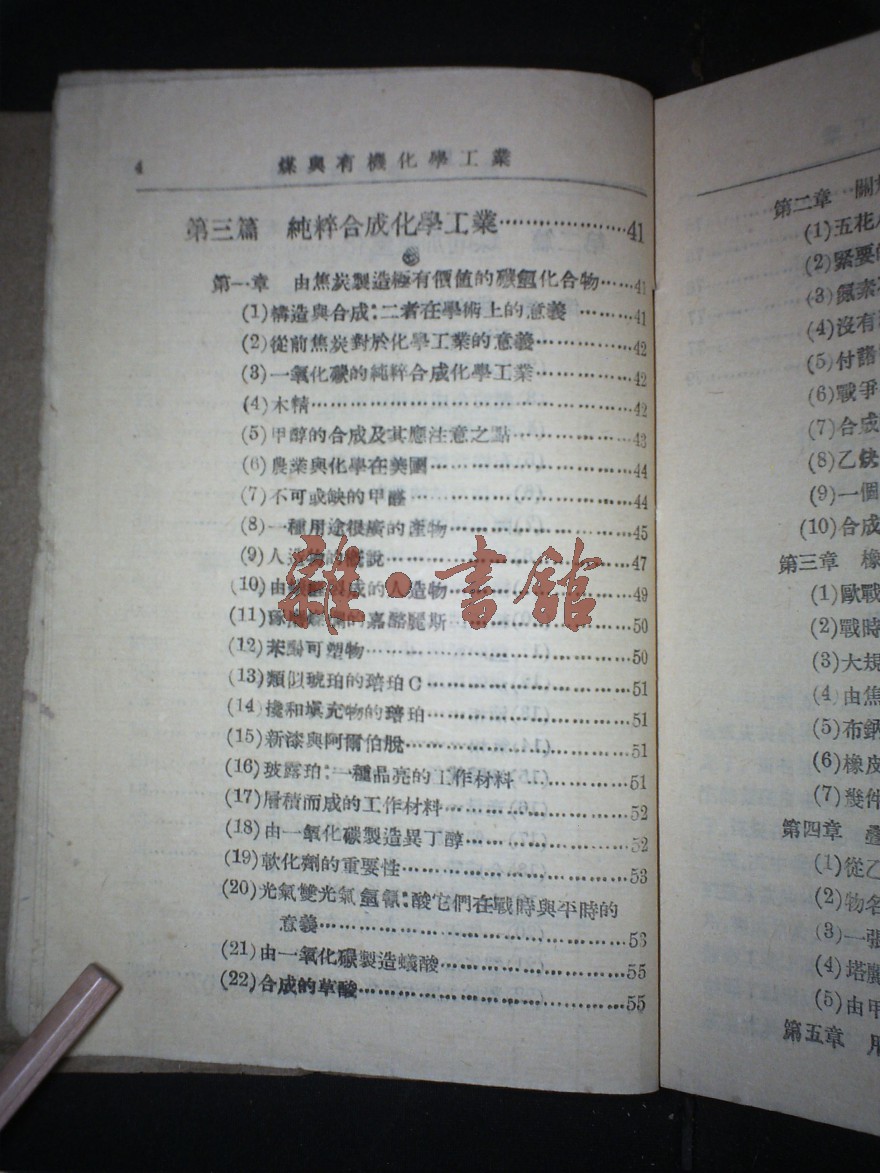 4 煤與有機化學工業
第三篇 純粹合成化學工業………………41
第一章 由焦炭製造極有價值的碳氫化合物……41
(1)構造與合成:二者在學術上的意義………41
(2)從前焦炭對於化學工業的意義……………42
(3)一氧化碳的純粹合成化學工業……………42
(4)木精…………………………………………42
(5)甲醇的合成及其應注意之點………………43
(6)農業與化學在美國…………………………44
(7)不可或缺的甲醛……………………………44
(8)一種用途很廣的產物………………………45
(9)人造物的 說………………………………47
(10)由 成的人造物…………………………49
(11) 的嘉酪麗斯……………………………50
(12) 可塑物…………………………………50
(13)類似琥珀的琣珀C…………………………51
(14 攙和填充物的琣珀…………………………51
(15)新漆與阿爾伯脫……………………………51
(16)玻露珀:一種晶亮的工作材料……………51
(17)層積而成的工作材料………………………52
(18)由一氧化碳製造異丁醇……………………52
(19)軟化劑的重要性……………………………53
(20)光氣雙光氣氫氰:酸它們在戰時與平時的
意義……………………………………………53
(21)由一氧化碳製造蟻酸………………………55
(22)合成的草酸…………………………………55
雜·書館
第二章 關
(1)五花
(2)緊要的
(3)氮素
(4)沒有
(5)付諸
(6)戰爭
(7)合成
(8)乙炔
(9)一個
(10)合成
第三章 橡
(1)歐戰
(2)戰時
(3)大規
(4)由焦
(5)布鈉
(6)橡皮
(7)幾件
第四章
(1)從乙
(2)物名
(3)一張
(4)塔
(5)由甲
第五章 用